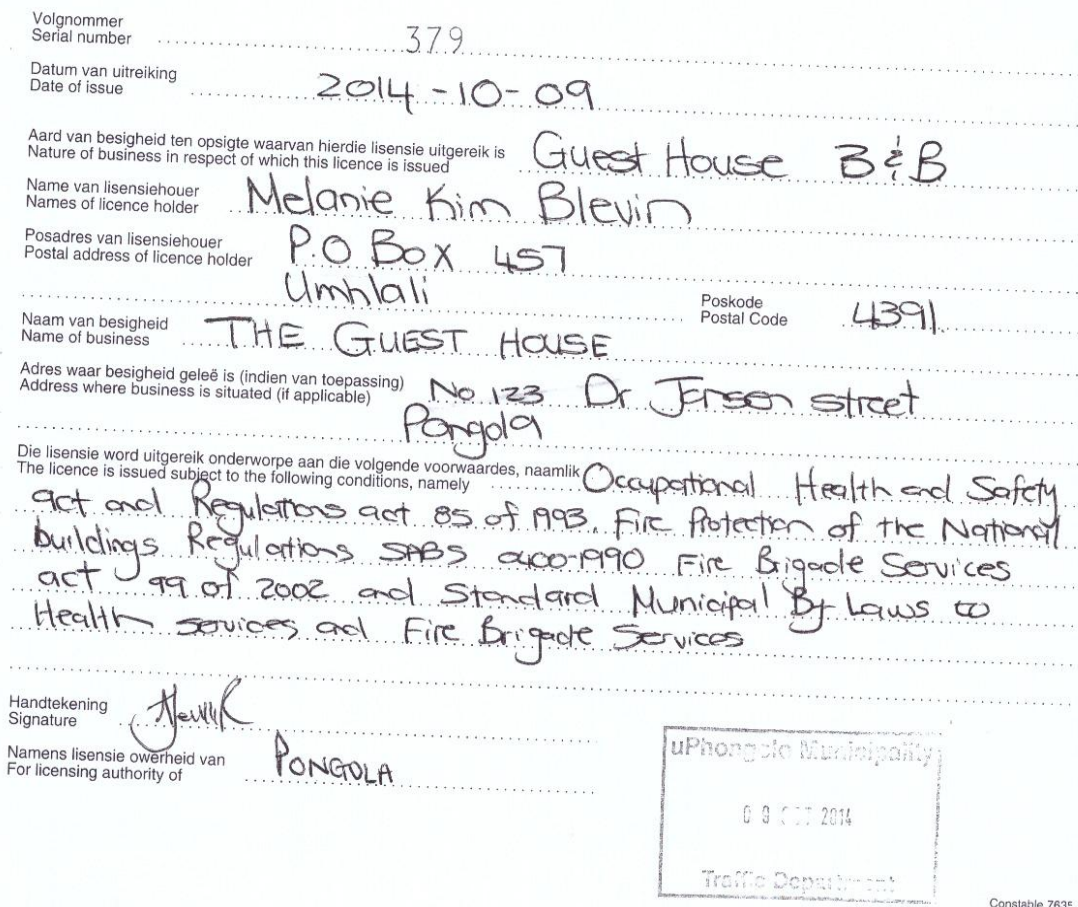 Volgnommer
Serial number 379
Datum van uitreiking
Date of issue 2014-10-09
Aard van besigheid ten opsigte waarvan hierdie lisensie uitgereik is
Nature of business in respect of which this licence is issued Guest House B & B
Name van lisensiehouer
Names of licence holder Melanie Kim Blevin
Posadres van lisensiehouer
Postal address of licence holder P.O Box 457
Umhlali
Poskode
Postal Code 4391
Naam van besigheid
Name of business THE GUEST HOUSE
Adres waar besigheid geleë is (indien van toepassing)
Address where business is situated (if applicable) No 123 Dr Jansen street
Pongola
Die lisensie word uitgereik onderworpe aan die volgende voorwaardes, naamlik
The licence is issued subject to the following conditions, namely Occupational Health and Safety
act and Regulations act 85 of 1993. Fire Protection of the National
buildings Regulations SABS 0400-1990 Fire Brigade Services
act 99 of 2002 and Standard Municipal By Laws to
Health services and Fire Brigade Services
Handtekening
Signature
Namens lisensie owerheid van
For licensing authority of PONGOLA
uPhongolo Municipality
09 OCT 2014
Traffic Department
Constable 7635